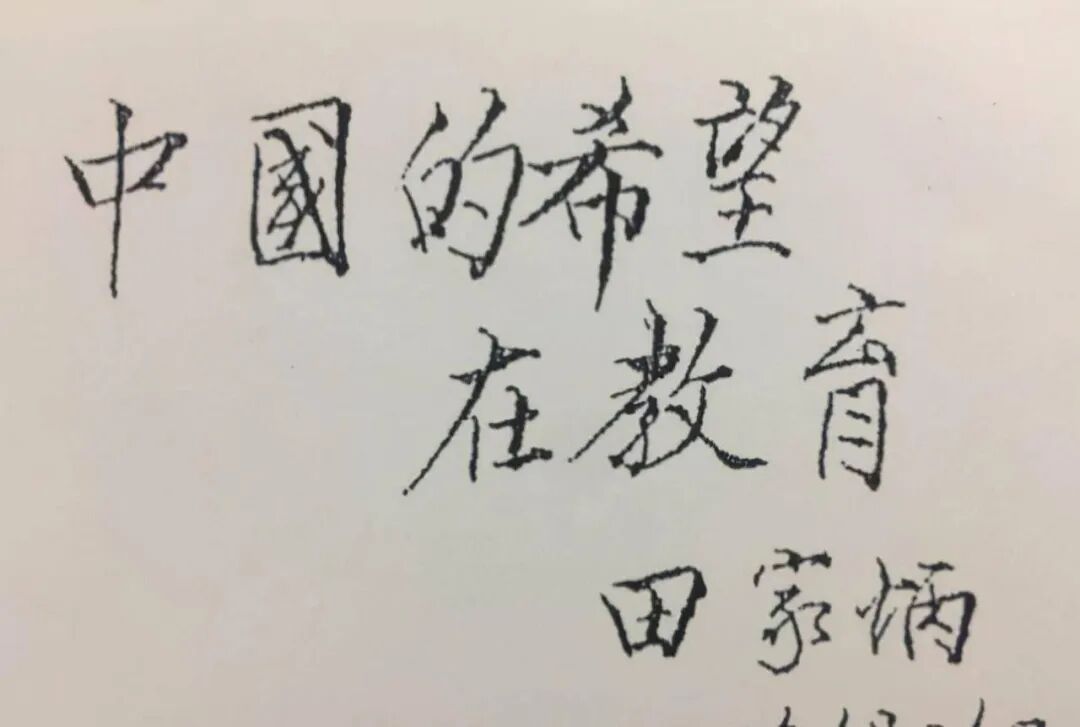 中國的希望
在教育
田家炳